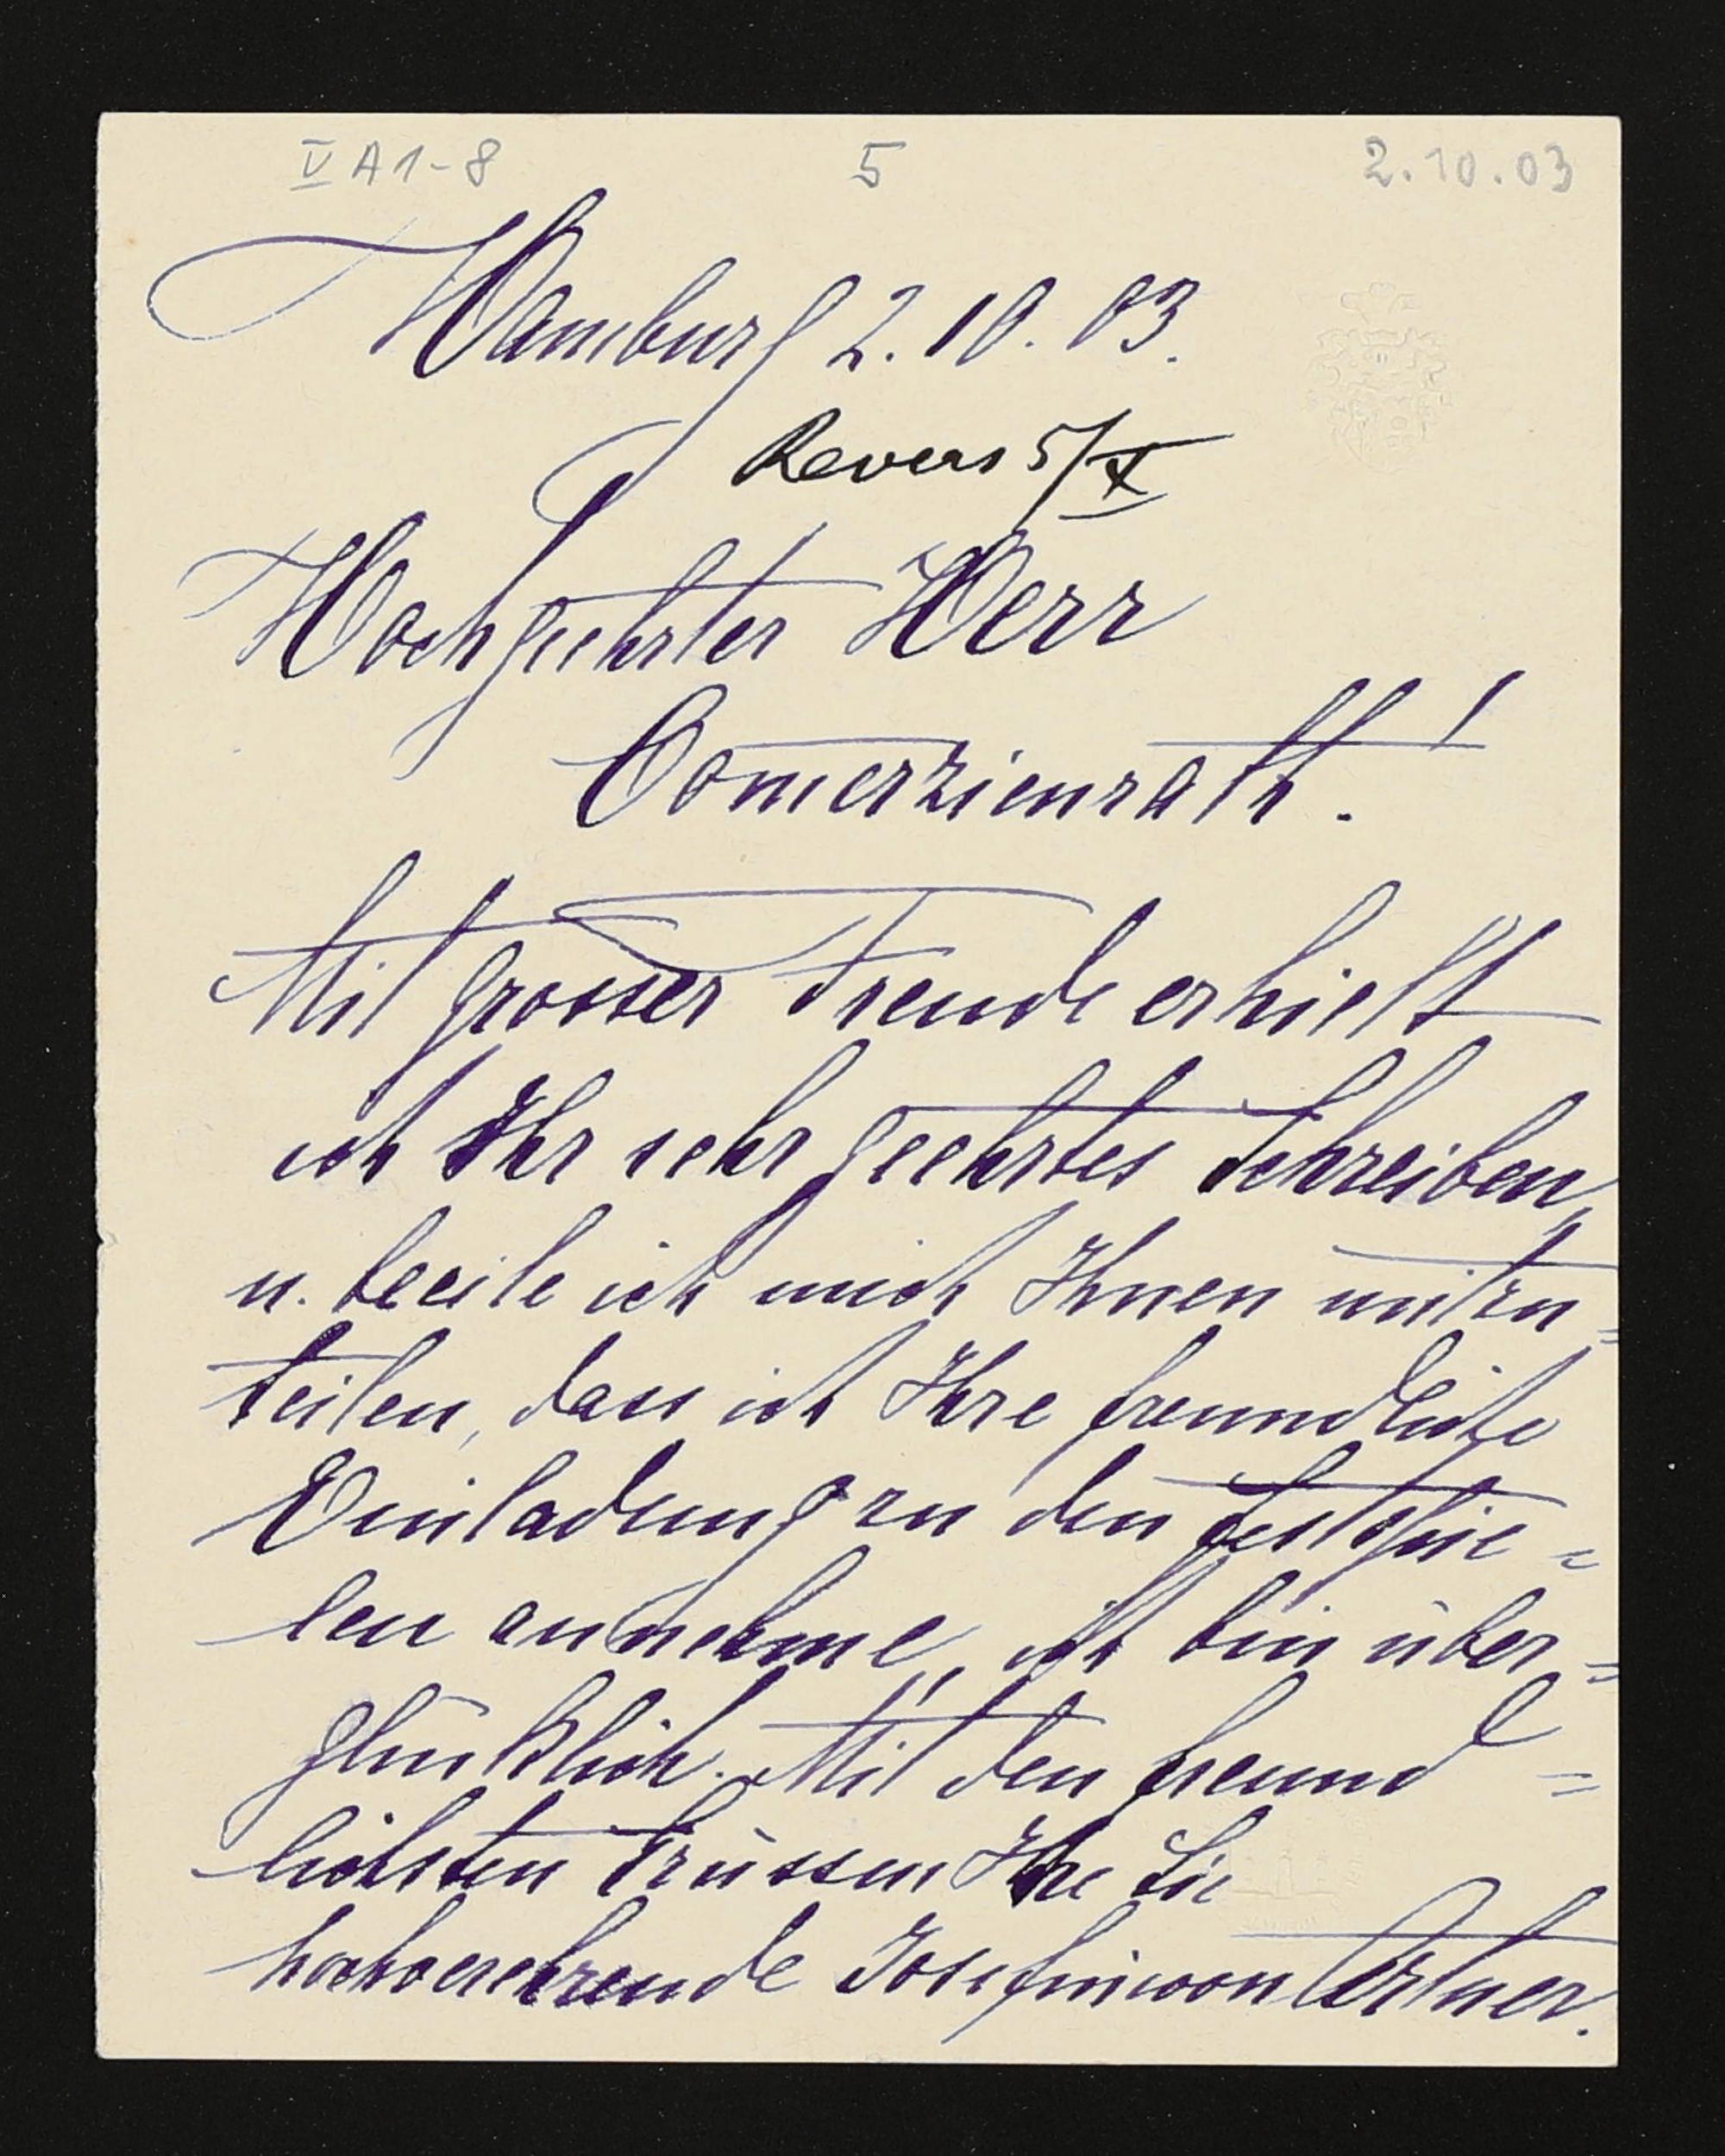 V A 1-8 5 2.10.03
Hamburg 2. 10. 03.
Revers 5/X
Hochgeehrter Herr
Comerzienrath!
Mit grosser Freude erhielt
ich Ihr sehr geehrtes Schreiben,
u. beeile ich mich Ihnen mitzu=
teilen, dass ich Ihre freundliche
Einladung zu den Festspie=
len annehme, ich bin über=
glücklich. Mit den freund=
lichsten Grüssen Ihre Sie
hochverehrende Josefine von Artner.